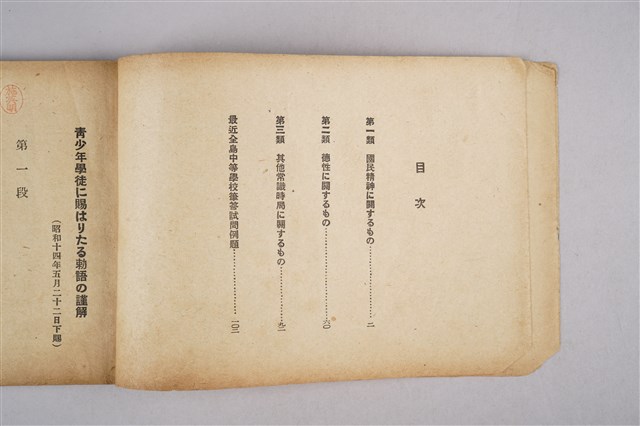 目次
第一類 國民精神に關するもの…………二
第二類 德性に關するもの…………
第三類 其他常識時局に關するもの…………
最近全島中等學校筆答試問例題…………一〇二
靑少年學徒に賜はりたる勅語の謹解
(昭和十四年五月二十二日下賜)
第一段